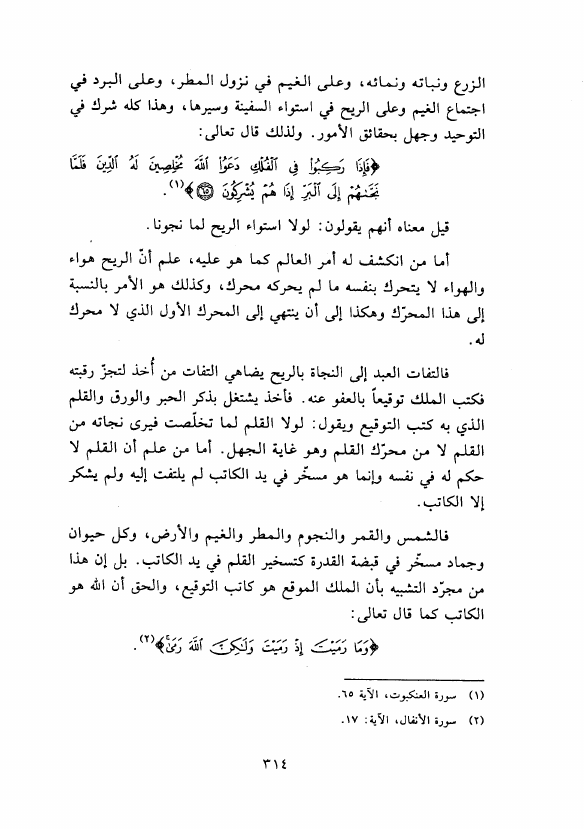 الزرع ونباته ونمائه، وعلى الغيم في نزول المطر، وعلى البرد في
اجتماع الغيم وعلى الريح في استواء السفينة وسيرها، وهذا كله شرك في
التوحيد وجهل بحقائق الأمور. ولذلك قال تعالى:
﴿فَإِذَا رَكِبُوا۟ فِى ٱلْفُلْكِ دَعَوُا۟ ٱللَّهَ مُخْلِصِينَ لَهُ ٱلدِّينَ فَلَمَّا
نَجَّىٰهُمْ إِلَى ٱلْبَرِّ إِذَا هُمْ يُشْرِكُونَ ۝٦٥﴾(١).
قيل معناه أنهم يقولون: لولا استواء الريح لما نجونا.
أما من انكشف له أمر العالم كما هو عليه، علم أنّ الريح هواء
والهواء لا يتحرك بنفسه ما لم يحركه محرك، وكذلك هو الأمر بالنسبة
إلى هذا المحرّك وهكذا إلى أن ينتهي إلى المحرك الأول الذي لا محرك
له.
فالتفات العبد إلى النجاة بالريح يضاهي التفات من أُخذ لتجزّ رقبته
فكتب الملك توقيعاً بالعفو عنه. فأخذ يشتغل بذكر الحبر والورق والقلم
الذي به كتب التوقيع ويقول: لولا القلم لما تخلّصت فيرى نجاته من
القلم لا من محرّك القلم وهو غاية الجهل. أما من علم أن القلم لا
حكم له في نفسه وإنما هو مسخّر في يد الكاتب لم يلتفت إليه ولم يشكر
إلا الكاتب.
فالشمس والقمر والنجوم والمطر والغيم والأرض، وكل حيوان
وجماد مسخّر في قبضة القدرة كتسخير القلم في يد الكاتب. بل إن هذا
من مجرّد التشبيه بأن الملك الموقع هو كاتب التوقيع، والحق أن الله هو
الكاتب كما قال تعالى:
﴿وَمَا رَمَيْتَ إِذْ رَمَيْتَ وَلَٰكِنَّ ٱللَّهَ رَمَىٰ﴾(٢).
(١) سورة العنكبوت، الآية ٦٥.
(٢) سورة الأنفال، الآية: ١٧.
٣١٤